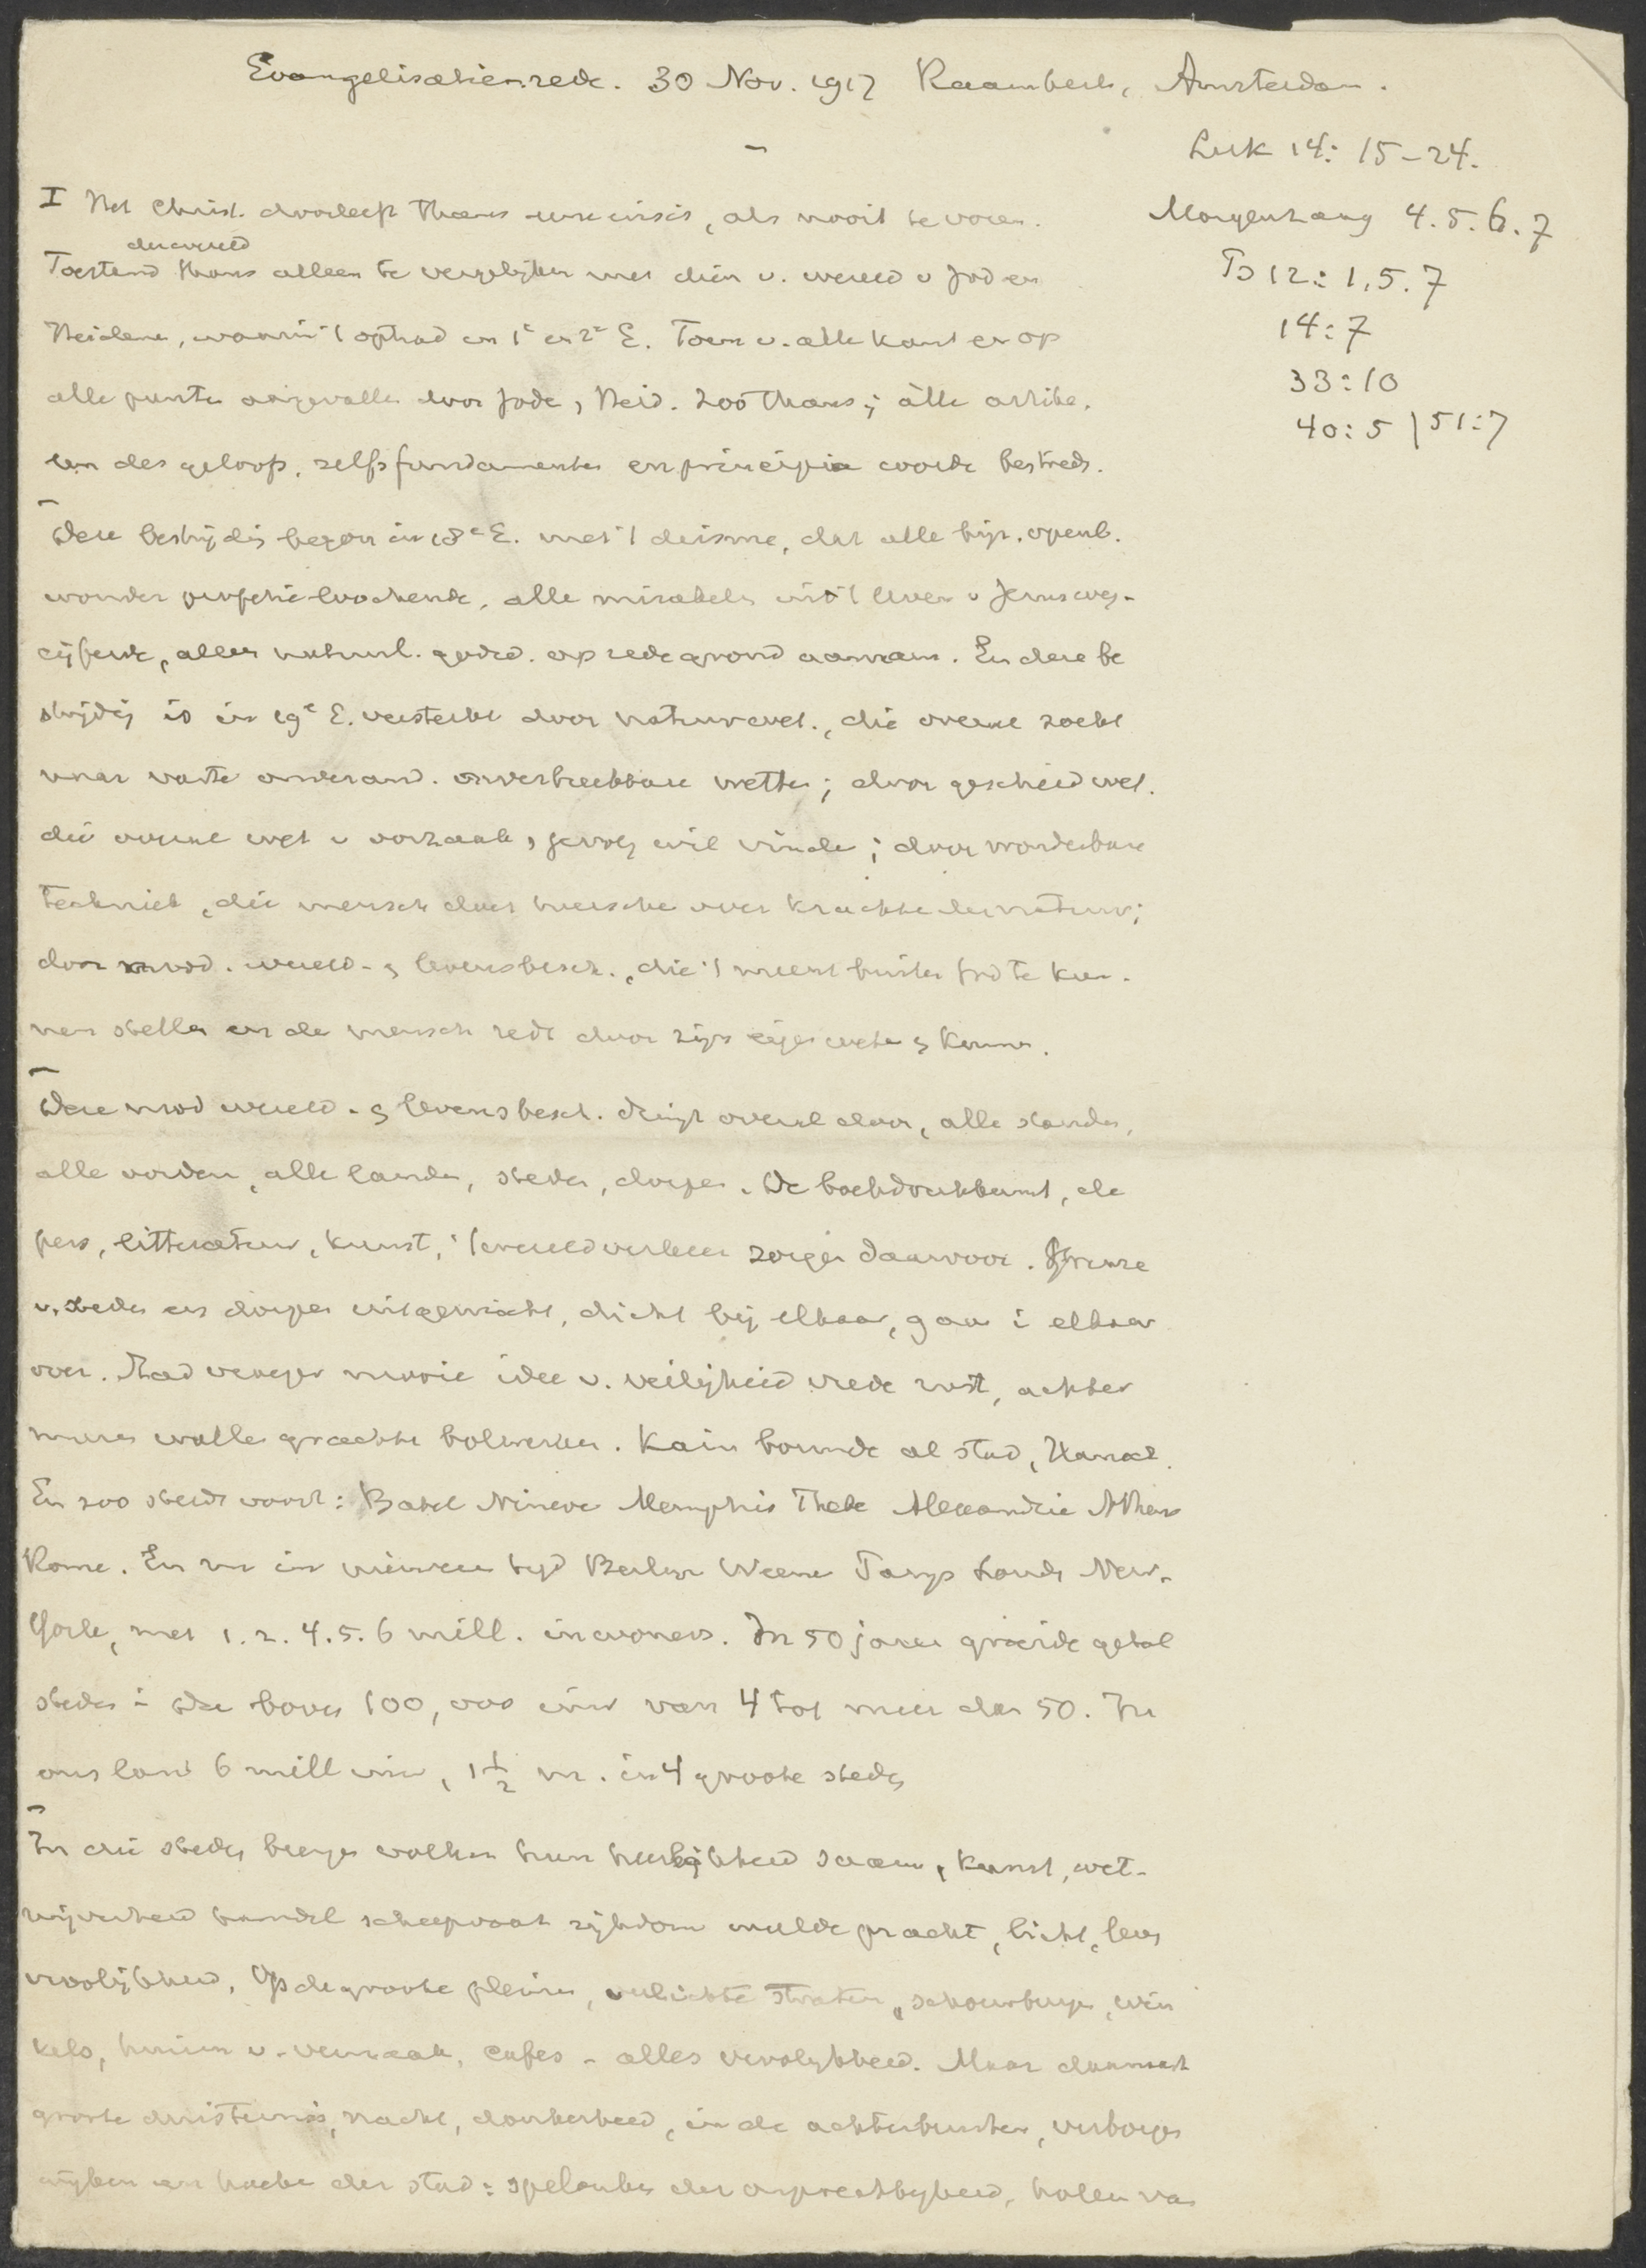 Evangelisatierede. 30 Nov. 1917 Raamkerk, Amsterdam.
Luk 14: 15-24.
Morgenzang 4. 5. 6. 7
Ps 12: 1, 5. 7
14: 7
33: 10
40: 5 | 51: 7
I Het Christ. doorleeft thans eene crisis, als nooit te voren.
der wereld
Toestand thans alleen te vergelijken met dien v. wereld v Joden
Heidenen, waarin 't optrad in 1e en 2e E. Toen v. alle kant en op
alle punten aangevallen door Joden, Heid. Zoo thans; álle artike-
len des geloofs, zelfs fundamenten en principia worden bestreden.
Deze bestrijding begon in 18e E. met 't deisme, dat alle bijz. openb.
wonder profetie loochende, alle mirakelen uit 't leven v Jezus weg-
cijferde, alleen natuurl. godsd. op redegrond aannam. En deze be
strijdig is in 19e E. versterkt door natuurwet., die overal zoekt
naar vaste onverand. onverbreekbare wetten; door geschiedwet.
die overal wet v oorzaak, gevolg wil vinden; door wonderbare
techniek, die mensch doet heersche over krachten der natuur;
door mod. wereld- en levensbesch., die 't meent buiten God te kun-
nen stellen en de mensch redt door zijn eigen weten en kunnen.
Deze mod wereld- en levensbesch. dringt overal door, alle standen,
alle oorden, alle landen, steden, dorpen. De boekdrukkunst, de
pers, litteratuur, kunst, 't wereldverkeer zorgen daarvoor. Grenze
v. steden en dorpen uitgewischt, dicht bij elkaar, gaan i elkaar
over. Stad vroeger mooie idee v. veiligheid vrede rust, achter
muren wallen grachten bolwerken. Kain bouwde al stad, Hanoch.
En zoo steeds voort: Babel Nineve Memphis Thebe Alexandrie Athene
Rome. En nu in nieuwen tijd Berlijn Weenen Parijs Londen New-
York, met 1. 2. 4. 5. 6 mill. inwoners. In 50 jaren groeide getal
steden i Du boven 100,000 inw van 4 tot meer dan 50. In
ons land 6 mill inw, 1½ m. in 4 groote steden
In die steden brengen volken hun heerlijkheid saam, kunst, wet-
nijverheid handel scheepvaart rijkdom weelde pracht, licht, leven
vroolijkheid. Op de groote pleinen, verlichte straten, schouwburgen, win
kels, huizen v. vermaak, cafes - alles vroolijkheid. Maar daarnaast
groote duisternis, nacht, donkerheid, in de achterbuurten, verborgen
wijken en hoeken der stad: spelonken der ongerechtigheid, holen van